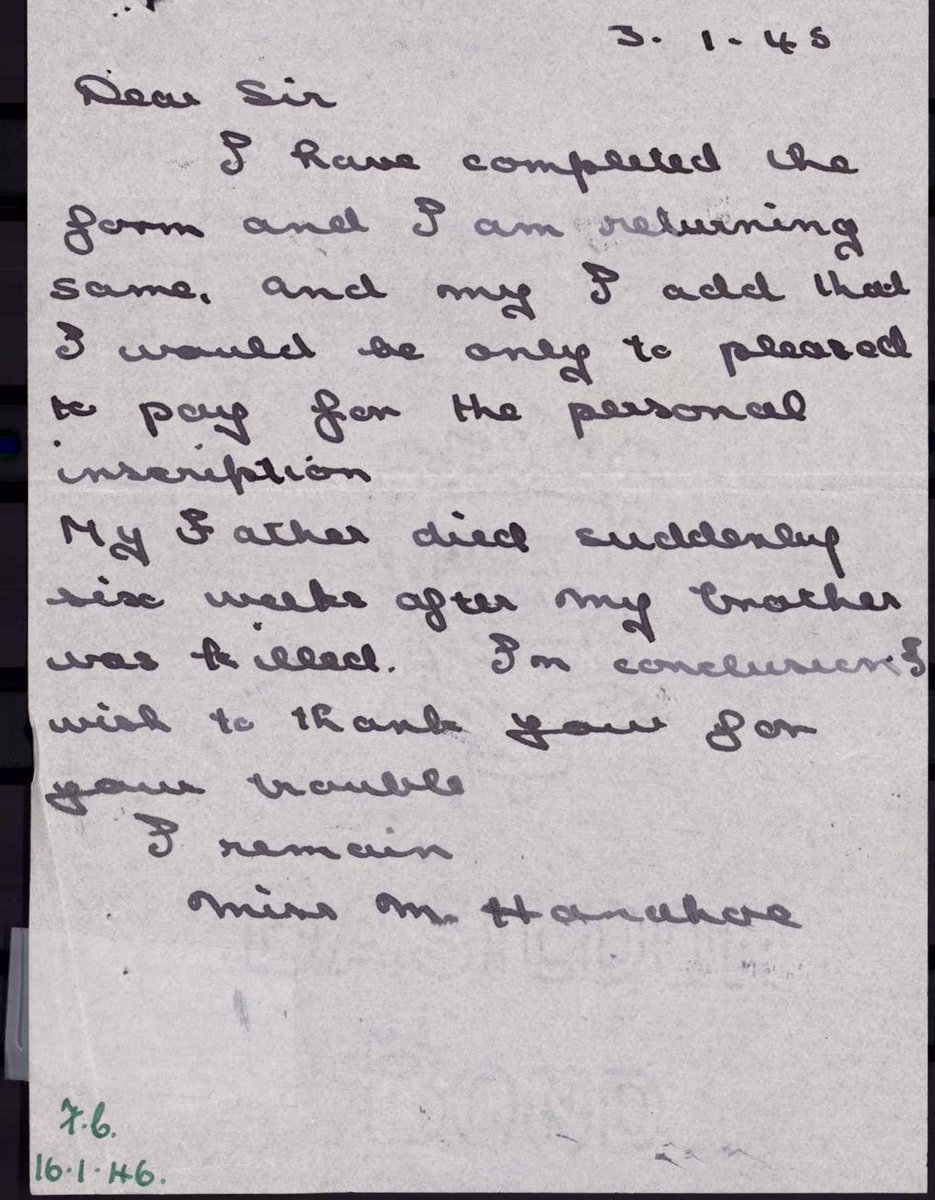 3. 1. 45
Dear Sir
I have completed the
form and I am returning
same. And my I add that
I would be only to pleased
to pay for the personal
inscription
My Father died suddenly
six weeks after my brother
was killed. In conclusion I
wish to thank your for
your trouble
I remain
Miss M. Hanahoe
7.6.
16.1.46.